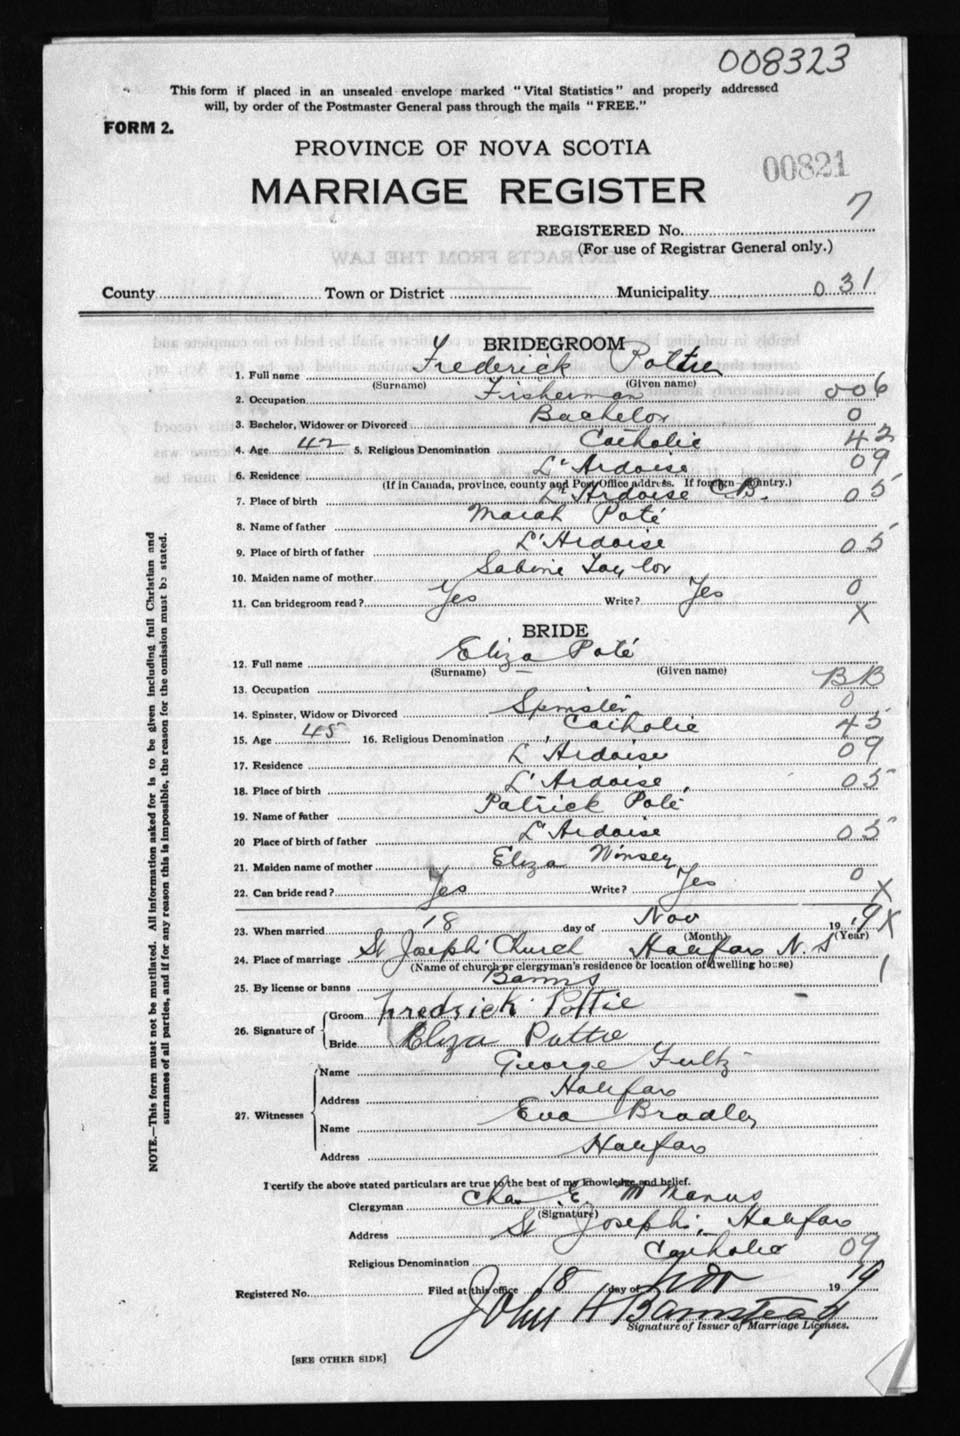 008323
This form if placed in an unsealed envelope marked "Vital Statistics" and properly addressed
will, by order of the Postmaster General pass through the mails "FREE."
FORM 2.
PROVINCE OF NOVA SCOTIA
00821
MARRIAGE REGISTER
7
REGISTERED No.
(For use of Registrar General only.)
County Town or District Municipality 031
BRIDEGROOM
1. Full name Frederick Pottie
(Surname) (Given name)
2. Occupation Fisherman 006
3. Bachelor, Widower or Divorced Bachelor 0
4. Age 42 5. Religious Denomination Catholic 42
6. Residence L'Ardoise 09
(If in Canada, province, county and Post Office address. If foreign country.)
7. Place of birth L'Ardoise C.B. 05
8. Name of father Poté
9. Place of birth of father L'Ardoise 05
10. Maiden name of mother Sabine Taylor
11. Can bridegroom read? Yes Write? Yes 0
X
BRIDE
12. Full name Eliza Poté
(Surname) (Given name)
13. Occupation BB
14. Spinster, Widow or Divorced Spinster 0
15. Age 45 16. Religious Denomination Catholic 45
17. Residence L'Ardoise 09
18. Place of birth L'Ardoise 05
19. Name of father Patrick Poté
20 Place of birth of father L'Ardoise 05
21. Maiden name of mother Eliza
22. Can bride read? Yes Write? Yes 0 X
23. When married 18 day of Nov 19 19 X
(Month) (Year)
24. Place of marriage St Joseph's Church Halifax N. S
(Name of church or clergyman's residence or location of dwelling house) 1
25. By license or banns Banns
26. Signature of Groom Fredrick Pottie
Bride Eliza Pottie
27. Witnesses Name George Fultz
Address Halifax
Name Eva Bradley
Address Halifax
I certify the above stated particulars are true to the best of my knowledge and belief.
Clergyman Chas E. McManus
(Signature)
Address St Joseph's, Halifax
Religious Denomination Catholic 09
Registered No. Filed at this office 18 day of Nov 19 19
John H Barnstead
Signature of Issuer of Marriage Licenses.
[SEE OTHER SIDE]
NOTE.—This form must not be mutilated. All information asked for is to be given including full Christian and
surnames of all parties, and if for any reason this is impossible, the reason for the omission must be stated.